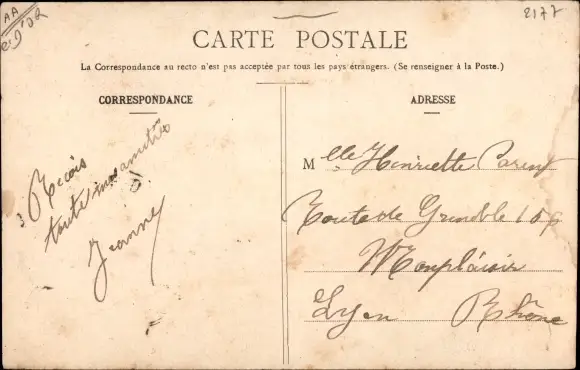 AA
2177
CARTE POSTALE
La Correspondance au recto n'est pas acceptée par tous les pays étrangers. (Se renseigner à la Poste.)
CORRESPONDANCE
Reçois
toute mon amitié
Jeanne
ADRESSE
Melle Henriette Parent
Route de Grenoble 109
Monplaisir
Lyon Rhône